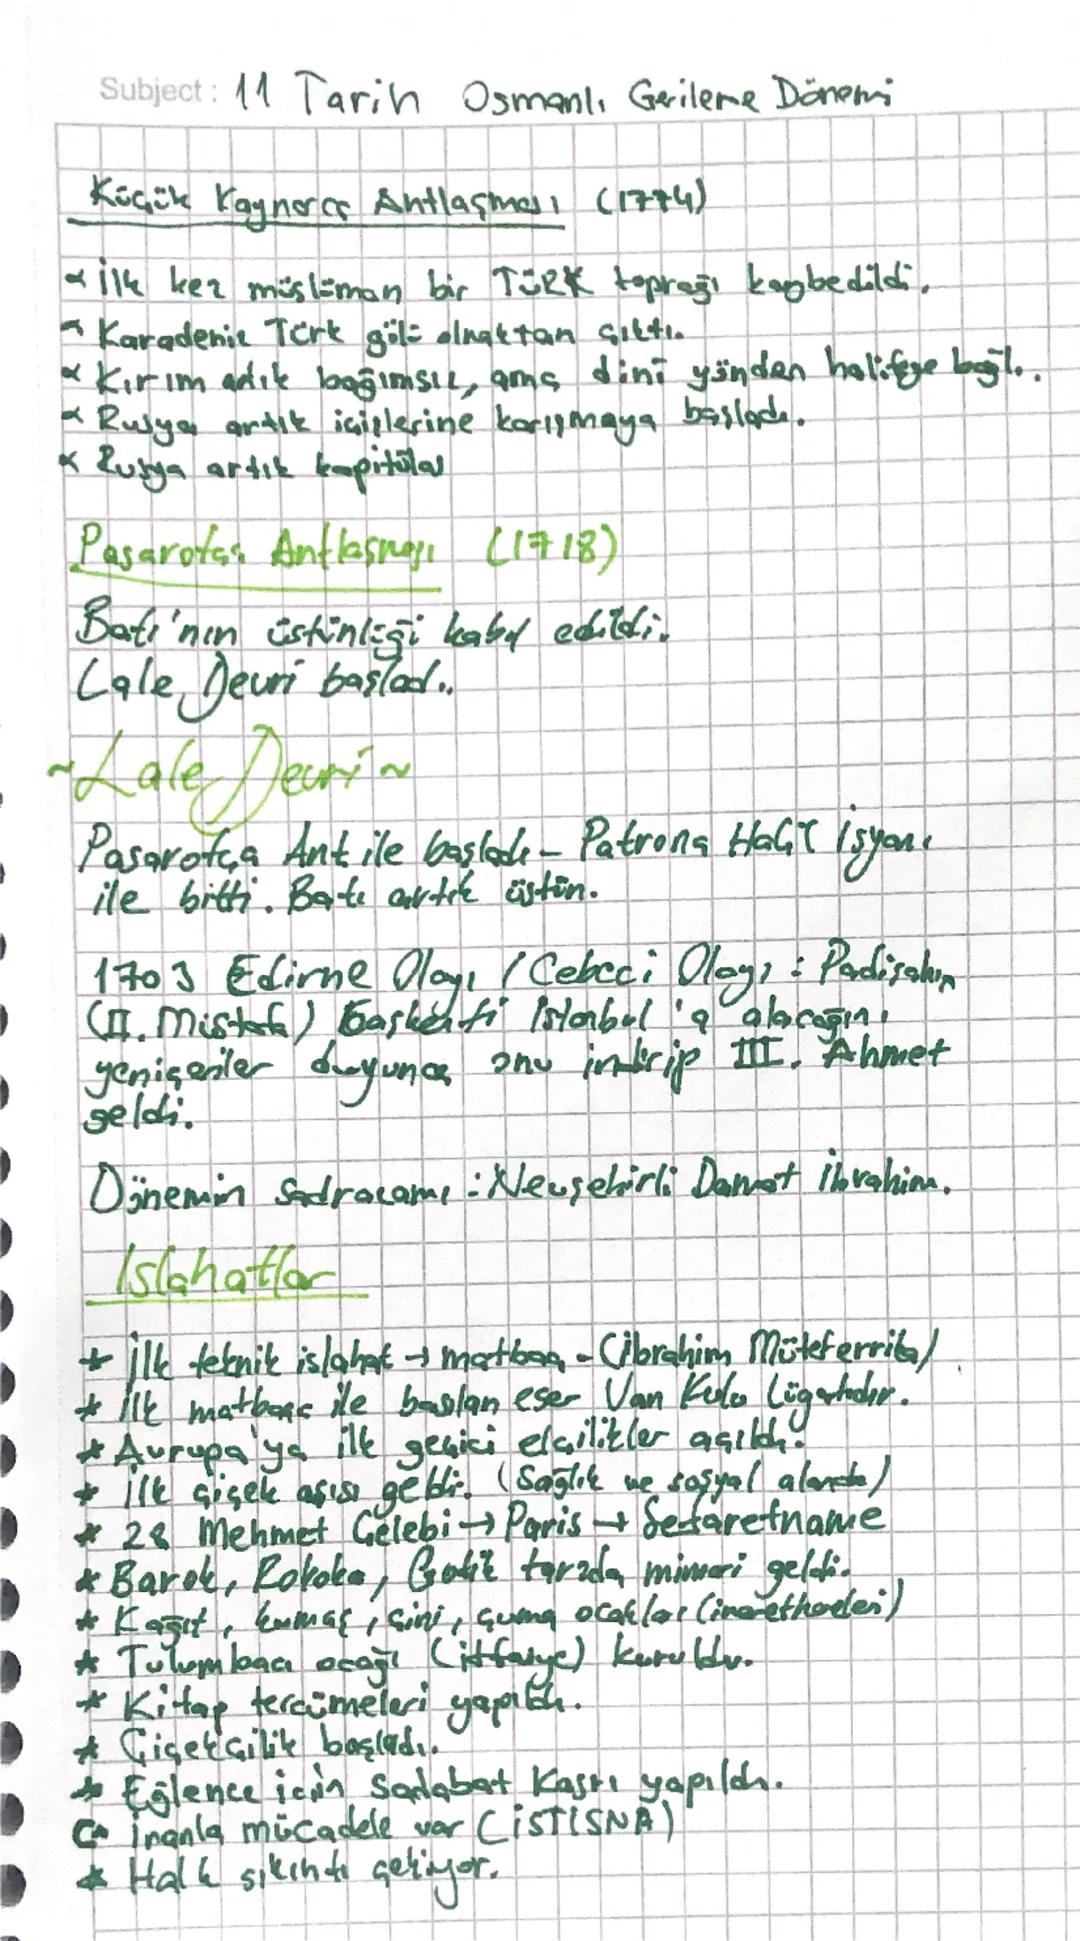 Subject: 11 Tarih Osmanlı Gerileme Dönemi
Küçük Kaynarca Antlaşması (1774)
İlk kez müslüman bir TÜRK toprağı kaybedildi.
Karadeniz Türk gölü olmaktan çıktı.
Kırım artık bağımsız, ama dini yönden halifeye bağlı.
Rusya artık içişlerine karışmaya başladı.
Rusya artık kapitülas
Pasarofça Antlaşması (1718)
Batı'nın üstünlüğü kabul edildi.
Lale Devri başladı.
~Lale Devri~
Pasarofça Ant ile başladı - Patrona Halil İsyanı
ile bitti. Batı artık üstün.
1703 Edirne Olayı / Cebeci Olayı: Padişahın
(II. Mustafa) başkenti İstanbul'a alacağını
yeniçeriler duyunca onu indirip III. Ahmet
geldi.
Dönemin Sadrazamı: Nevşehirli Damat İbrahim.
Islahatlar
* İlk teknik ıslahat → matbaa - (İbrahim Müteferrika)
* İlk matbaa ile basılan eser Van Kulu Lügatıdır.
* Avrupa'ya ilk geçici elçilikler açıldı.
* İlk çiçek aşısı geldi. (Sağlık ve sosyal alanda)
* 28 Mehmet Çelebi → Paris → Sefaretname
* Barok, Rokoko, Gotik tarzda mimari geldi.
* Kağıt, kumaş, çini, çuma ocaklar (imarethaneler)
* Tulumbacı ocağı (itfaiye) kuruldu.
* Kitap tercümeleri yapıldı.
* Çiçekçilik başladı.
* Eğlence için Sadabat Kasrı yapıldı.
İranla mücadele var (İSTİSNA)
* Halk sıkıntı çekiyor.